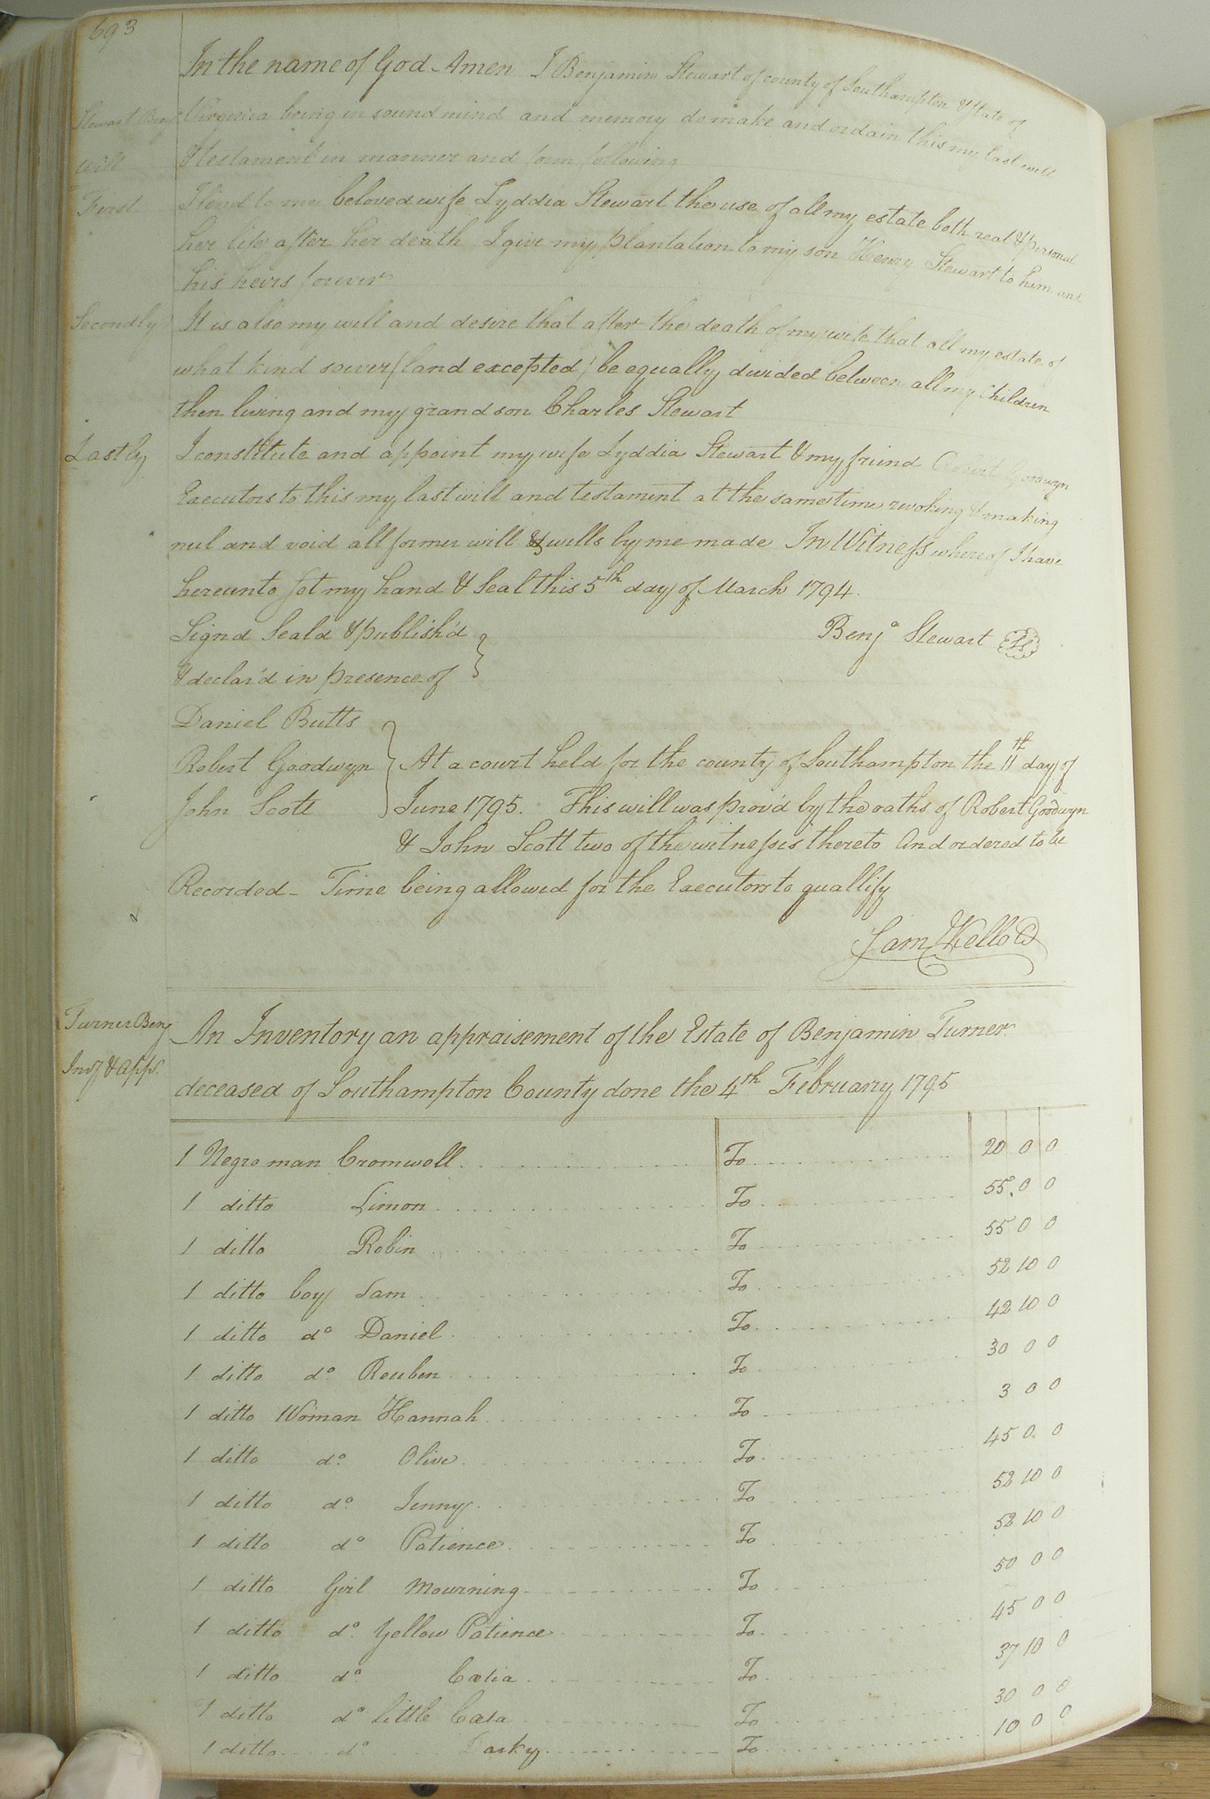 693
In the name of God Amen I Benjamin Stewart of county of Southampton & State of
Stewart Benj Virginia being in sound mind and memory do make and ordain this my last will
will & testament in manner and form following
First I lend to my beloved wife Lyddia Stewart the use of all my estate both real & personal
her life after her death I give my plantation to my son Henry Stewart to him and
his heirs forever
Secondly It is also my will and desire that after the death of my wife that all my estate of
what kind soever (land excepted) be equally divided between all my Children
then living and my grand son Charles Stewart
Lastly I constitute and appoint my wife Lyddia Stewart & my friend Goodwyn
Executors to this my last will and testament at the same time revoking & making
nul and void all former will & wills by me made In Witness whereof I have
hereunto set my hand & Seal this 5th day of March 1794.
Signd Seald & publish'd Benja Stewart
& declar'd in presence of
Daniel Butts
Robert Goodwyn At a court held for the county of Southampton the 11th day of
John Scott June 1795. This will was prov'd by the oaths of Robert Goodwyn
& John Scott two of the witnesses thereto And ordered to be
Recorded - Time being allowed for the Executors to quallify
Sam Kello
Turner Benj An Inventory an appraisement of the Estate of Benjamin Turner
Invy & apps. deceased of Southampton County done the 4th February 1795
1 Negro man Cromwell To 20 0 0
1 ditto Simon To 55 0 0
1 ditto Robin To 55 0 0
1 ditto boy Sam To 52 10 0
1 ditto do Daniel To 42 10 0
1 ditto do Reuben To 30 0 0
1 ditto Woman Hannah To 3 0 0
1 ditto do Olive To 45 0 0
1 ditto do Jenny To 52 10 0
1 ditto do Patience To 52 10 0
1 ditto Girl Mourning To 50 0 0
1 ditto do Yellow Patience To 45 0 0
1 ditto do To 37 10 0
1 ditto do little To 30 0 0
1 ditto do To 10 0 0